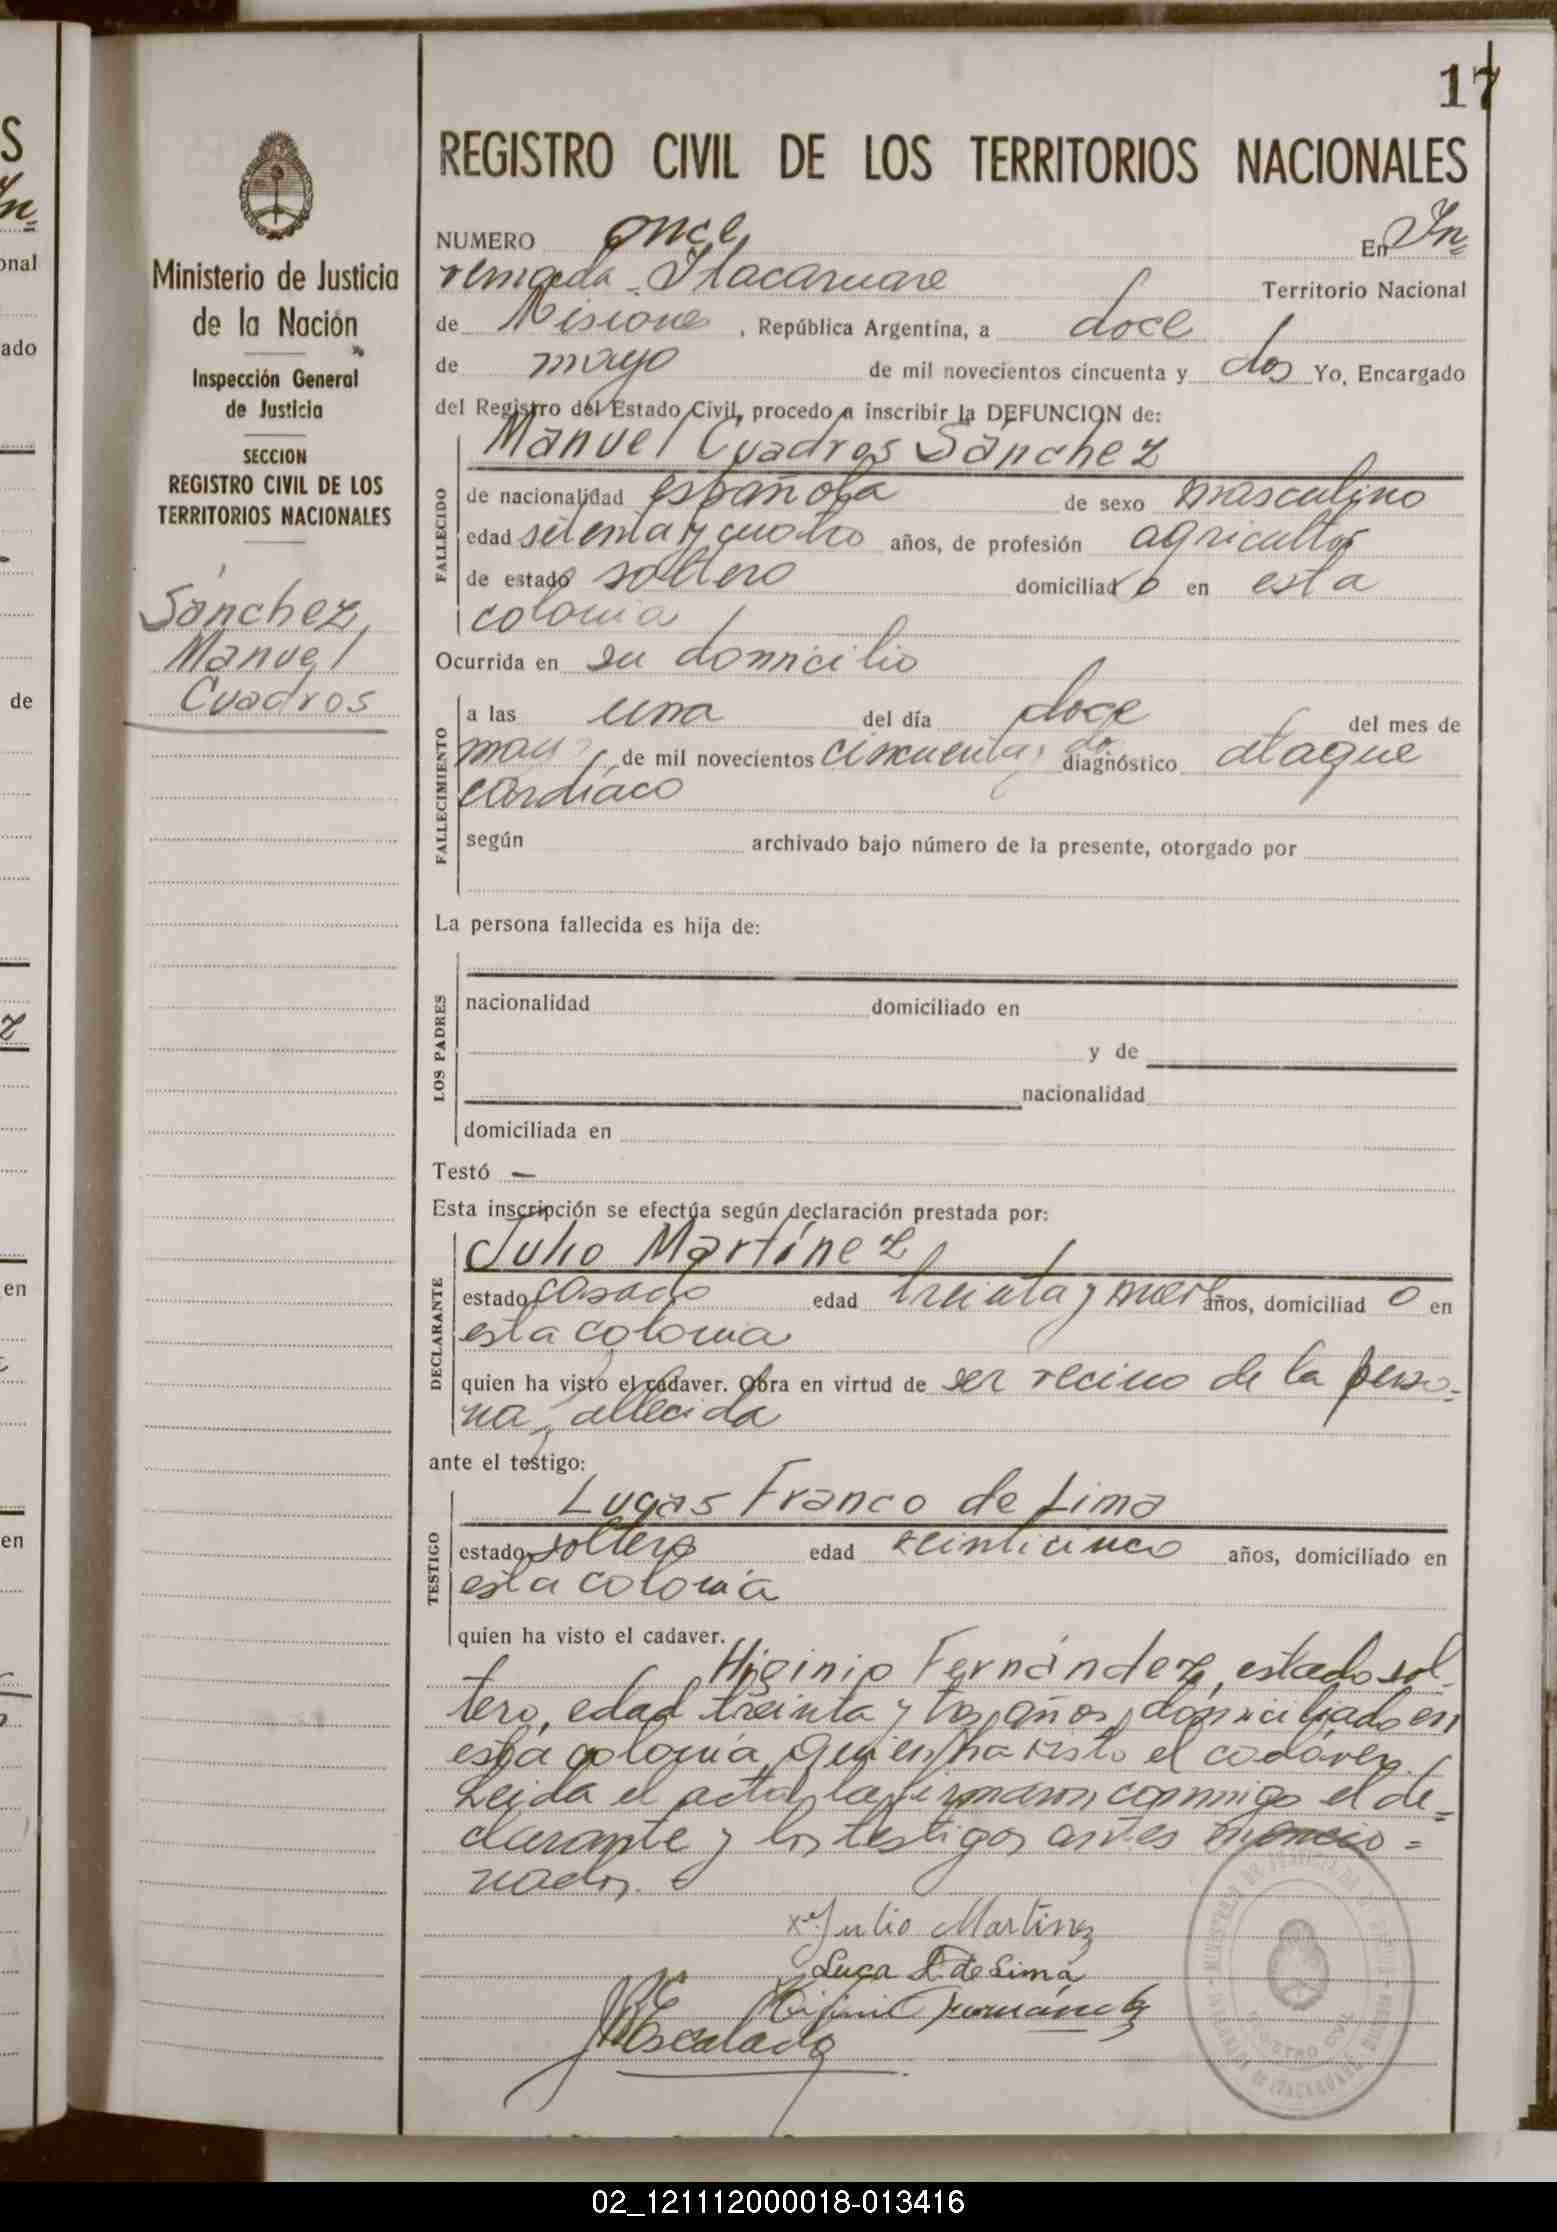 17
REGISTRO CIVIL DE LOS TERRITORIOS NACIONALES
Ministerio de Justicia
de la Nación
Inspección General
de Justicia
SECCION
REGISTRO CIVIL DE LOS
TERRITORIOS NACIONALES
Sánchez,
Manuel
Cuadros
NUMERO once En In=
vernada Itacaruare Territorio Nacional
de Misiones, República Argentina, a doce
de mayo de mil novecientos cincuenta y dos Yo, Encargado
del Registro del Estado Civil, procedo a inscribir la DEFUNCION de:
Manuel Cuadros Sánchez
FALLECIDO
de nacionalidad española de sexo masculino
edad setenta y cuatro años, de profesión agricultor
de estado soltero domiciliado en esta
colonia
Ocurrida en su domicilio
FALLECIMIENTO
a las una del día doce del mes de
mayo de mil novecientos cincuenta y dos diagnóstico ataque
cardíaco
según archivado bajo número de la presente, otorgado por
La persona fallecida es hija de:
LOS PADRES
nacionalidad domiciliado en
y de
nacionalidad
domiciliada en
Testó —
Esta inscripción se efectúa según declaración prestada por:
DECLARANTE
Julio Martínez
estado casado edad treinta y nueve años, domiciliad o en
esta colonia
quien ha visto el cadaver. Obra en virtud de ser vecino de la perso=
na fallecida
ante el testigo:
TESTIGO
Lucas Franco de Lima
estado soltero edad veinticinco años, domiciliado en
esta colonia
quien ha visto el cadaver.
Higinio Fernández, estado sol
tero, edad treinta y tres años, domiciliado en
esta colonia, quien ha visto el cadáver.
Leida el acta, la firmaron conmigo el de=
clarante y los testigos antes mencio=
nados.
Julio Martinez
Luca F. de Lima
Higinio Fernández
Escalada
REGISTRO CIVIL
02_121112000018-013416